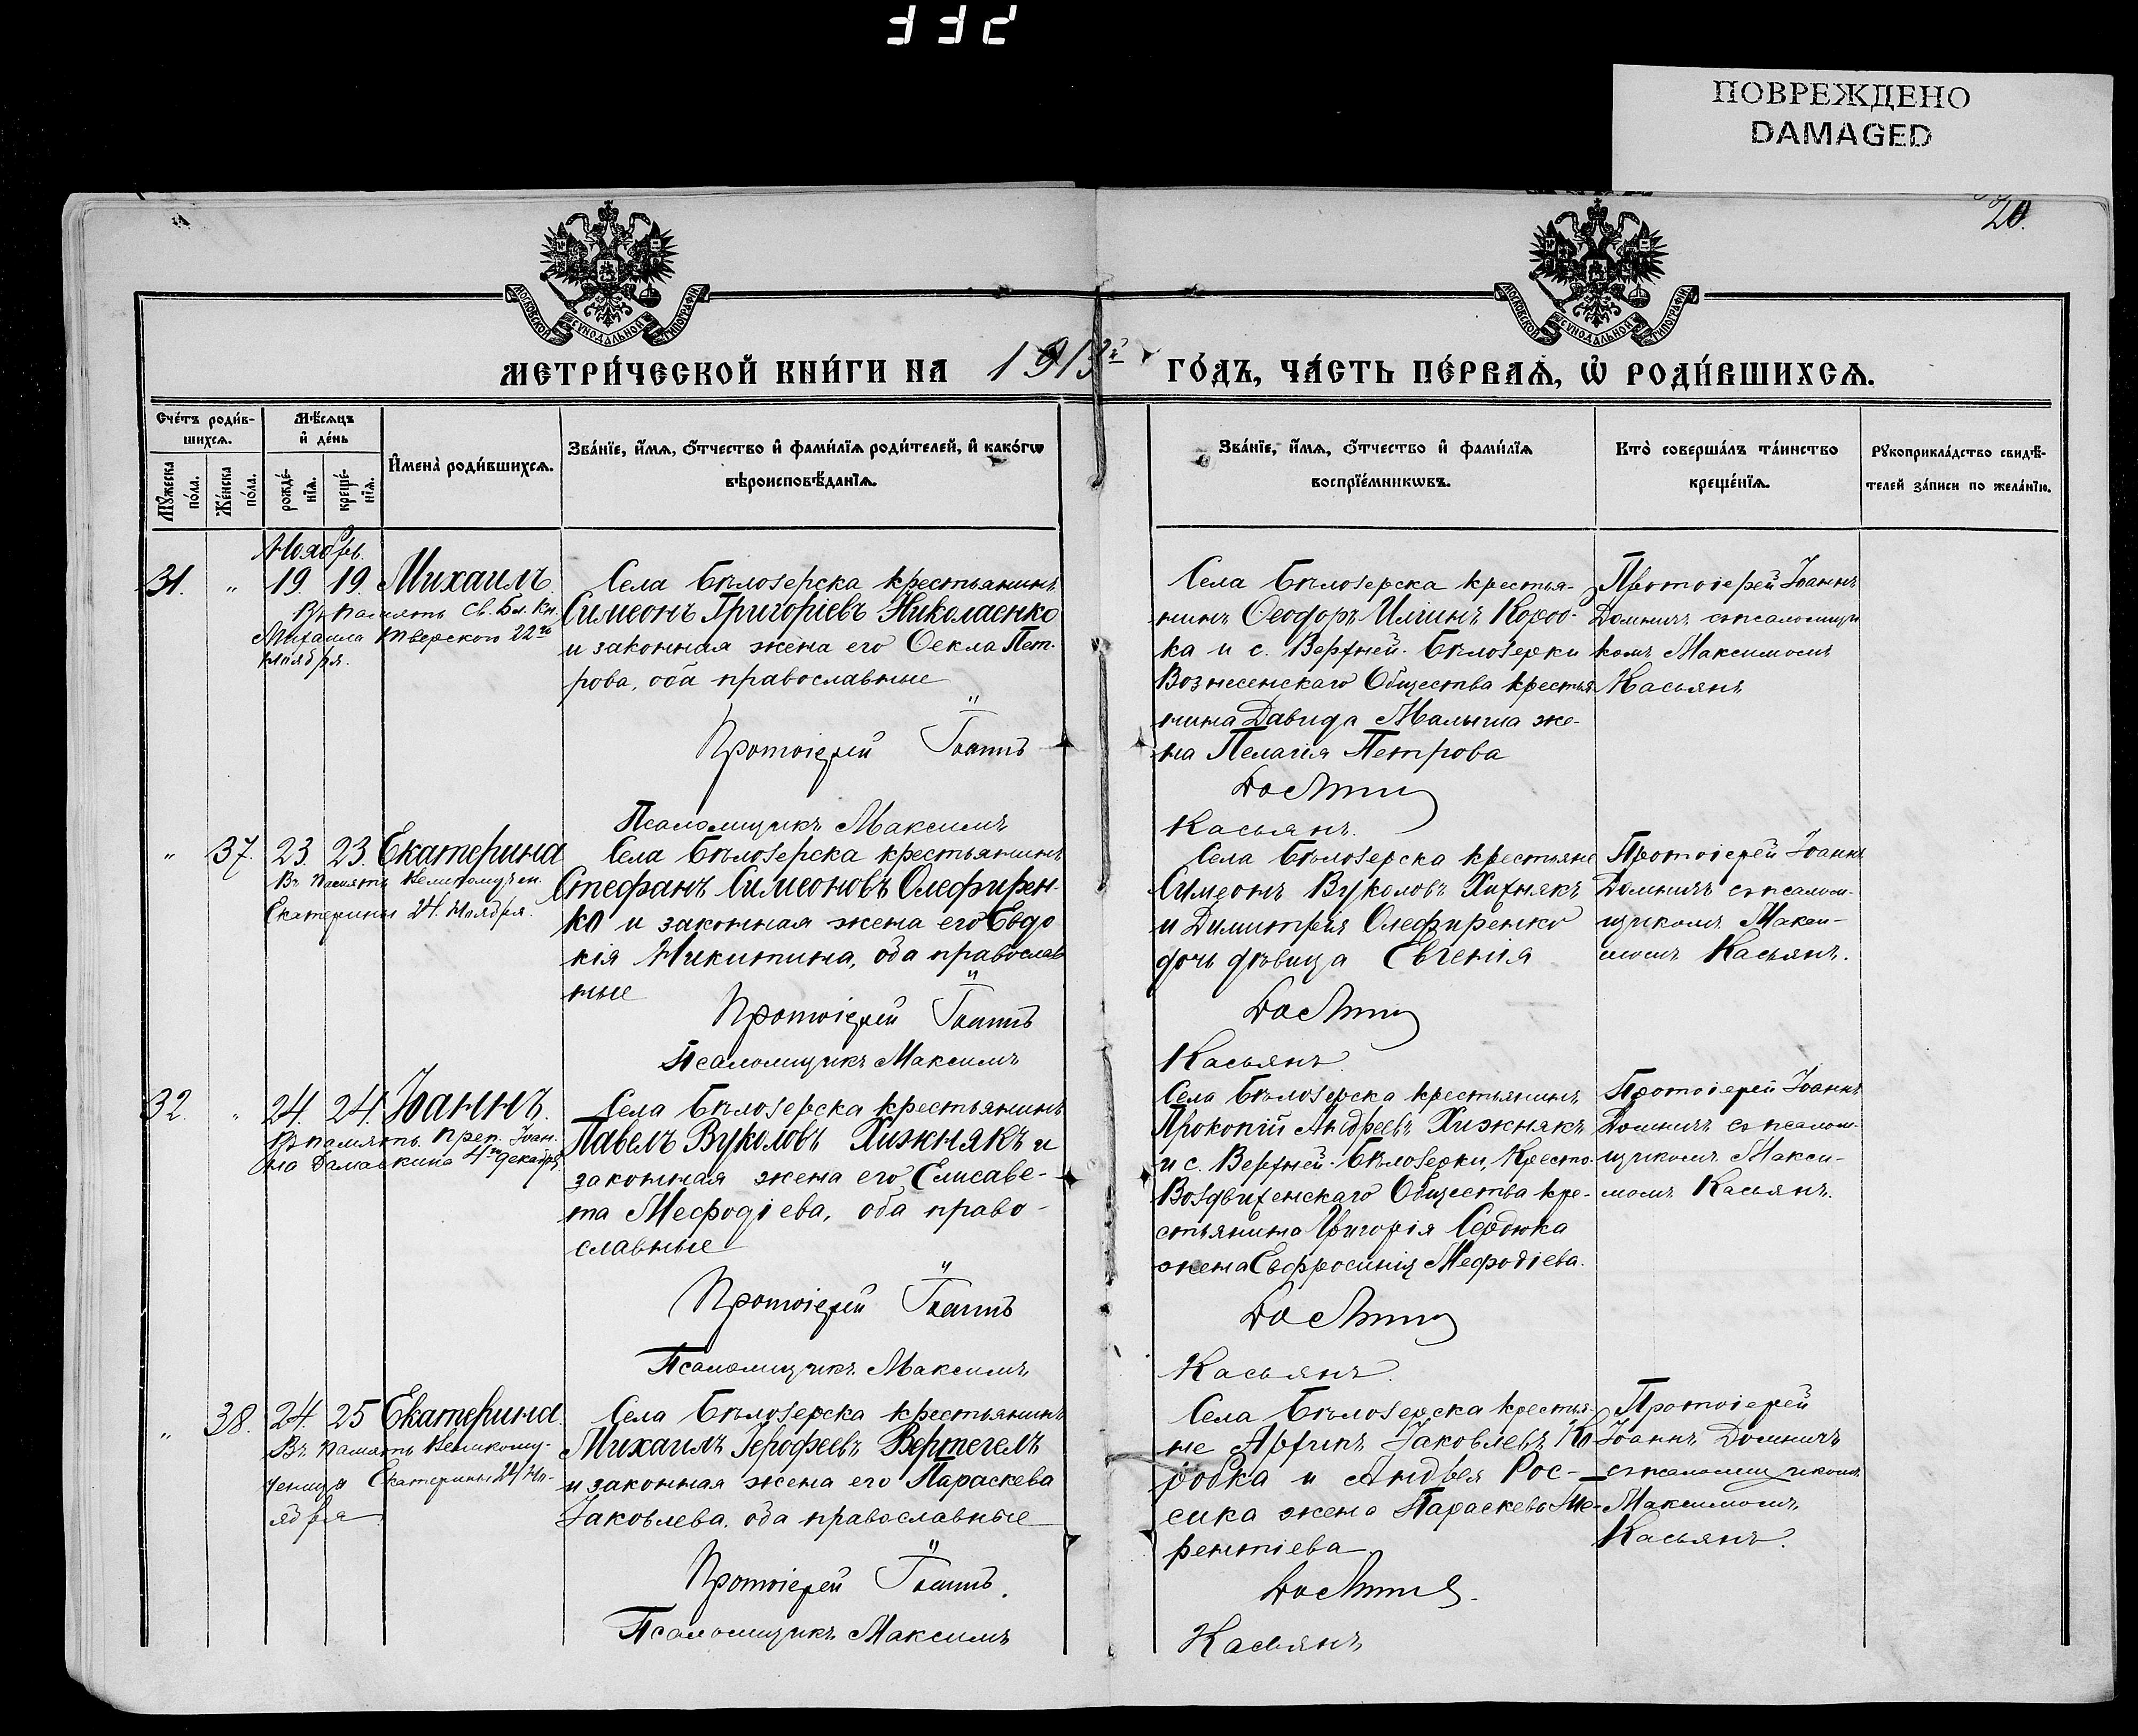 332
ПОВРЕЖДЕНО
DAMAGED
20.
МОСКОВСКОЙ СѴНОДАЛЬНОЙ ТИПОГРАФІИ
МОСКОВСКОЙ СѴНОДАЛЬНОЙ ТИПОГРАФІИ
МЕТРИ́ЧЕСКОЙ КНИ́ГИ НА 1913й ГО́ДЪ, ЧА́СТЬ ПЕ́РВАѦ, Ѡ҆ РОДИ́ВШИХСѦ.
Сче́тъ роди́в-
шихсѧ.
Мꙋ́жеска по́ла.
Же́нска по́ла.
Мѣ́сѧцъ
и҆ де́нь
рожде́-
нїѧ.
креще́-
нїѧ.
И҆мена̀ роди́вшихсѧ.
Зва́нїе, и҆́мѧ, ѻ҆́тчество и҆ фами́лїѧ роди́телей, и҆ како́гѡ
вѣроисповѣ́данїѧ.
Зва́нїе, и҆́мѧ, ѻ҆́тчество и҆ фами́лїѧ
воспрїе́мникѡвъ.
Кто̀ соверша́лъ та́инство
креще́нїѧ.
Рꙋкоприкла́дство свидѣ́-
телей за́писи по жела́нїю.
Ноябрь.
31. " 19. 19. Михаилъ
Въ память Св. Бл. Кн.
Михаила Тверского 22го
ноября.
Села Бѣлозерска крестьянинъ
Симеонъ Григоріевъ Николаенко
и законная жена его Ѳекла Пет-
рова, оба православные
Протоіерей Іоаннъ
Псаломщикъ Максимъ
Села Бѣлозерска крестья-
нинъ Ѳеодоръ Ильинъ
ка и с. Верхней-Бѣлозерки
Вознесенскаго Общества крестья
нина Давида Малыша же-
на Пелагія Петрова
Касьянъ.
Протоіерей Іоаннъ
Домничъ съ псаломщи
комъ Максимомъ
Касьянъ
" 37. 23. 23. Екатерина
Въ память Великомучен.
Екатерины 24. Ноября.
Села Бѣлозерска крестьянинъ
Стефанъ Симеоновъ Олефирен-
ко и законная жена его Евдо
кія Никитина, оба православ
ные
Протоіерей Іоаннъ
Псаломщикъ Максимъ
Села Бѣлозерска крестьяне
Симеонъ Вуколовъ Хижнякъ
и Димитрія Олефиренко
дочь дѣвица Евгенія
Касьянъ
Протоіерей Іоаннъ
Домничъ съ псалом-
щикомъ Макси-
момъ Касьянъ.
32. " 24. 24. Іоаннъ.
Въ память Преп. Іоан-
на Дамаскина 4го декабря
Села Бѣлозерска крестьянинъ
Павелъ Вуколовъ Хижнякъ и
законная жена его Елисаве-
та Меѳодіева, оба право-
славные
Протоіерей Іоаннъ
Псаломщикъ Максимъ
Села Бѣлозерска крестьянинъ
Прокопій Андреевъ Хижнякъ
и с. Верхней-Бѣлозерки, Кресто-
Воздвиженскаго Общества кре-
стьянина Григорія Сердюка
жена Евфросинія Меѳодіева.
Касьянъ.
Протоіерей Іоаннъ
Домничъ съ псалом-
щикомъ Макси-
момъ Касьянъ.
" 38. 24. 25 Екатерина.
Въ память Великому-
ченицы Екатерины 24 Но-
ября
Села Бѣлозерска крестьянинъ
Михаилъ Іероѳеевъ Вертегелъ
и законная жена его Параскева
Іаковлева, оба православные
Протоіерей Іоаннъ.
Псаломщикъ Максимъ
Села Бѣлозерска крестья-
не Архипъ Іаковлевъ Ко-
робка и Андрея Рос-
сика жена Параскева Те-
рентіева.
Касьянъ
Протоіерей
Іоаннъ Домничъ
съ псаломщикомъ
Максимомъ
Касьянъ.